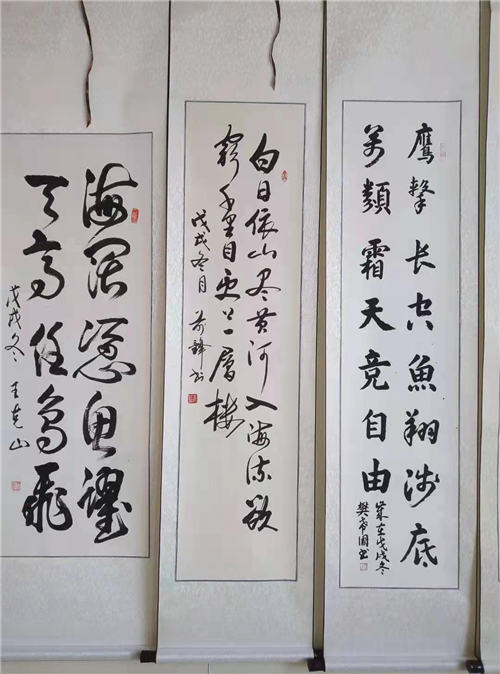 鹰擊长空魚翔浅底
萬類霜天竞自由
歲在戊戌冬
白日依山尽黄河入海流欲
窮千里目更上一層楼
戊戌冬月 前鋒书
海阔凭鱼躍
天高任鸟飛
戊戌冬 王克山